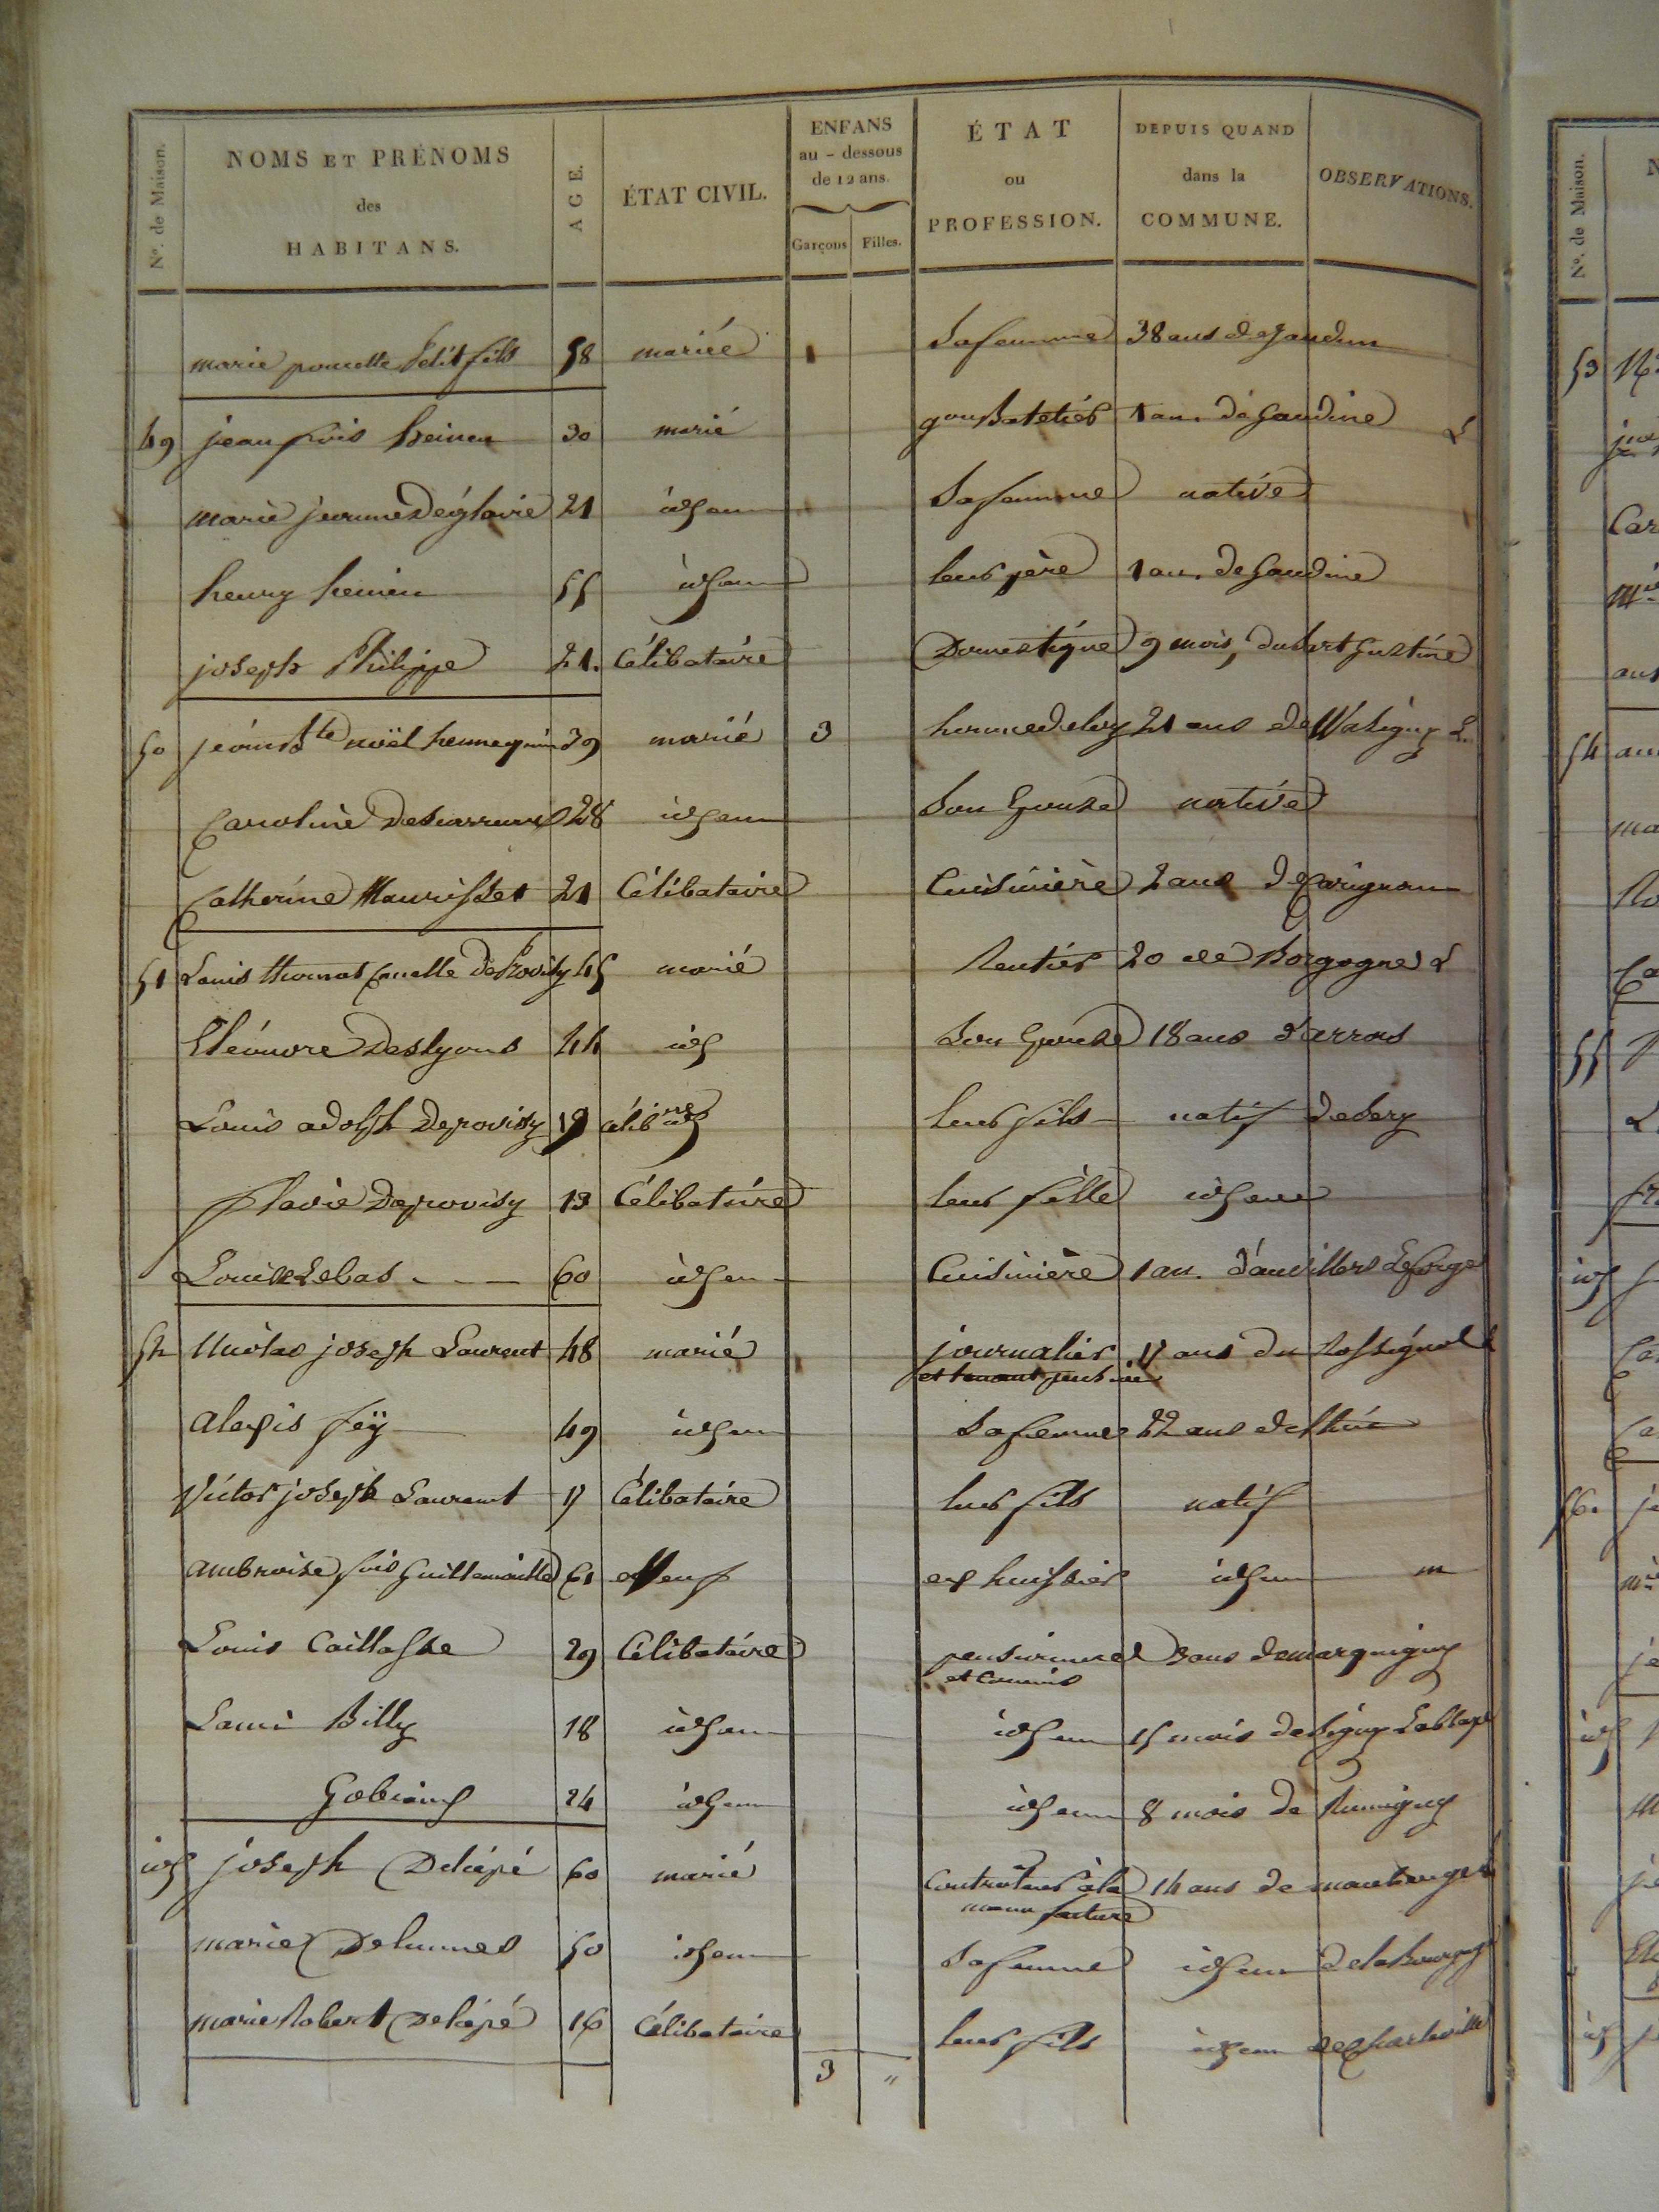 N.º de Maison.
NOMS ET PRÉNOMS
des
HABITANS.
AGE.
ÉTAT CIVIL.
ENFANS
au - dessous
de 12 ans.
Garçons Filles.
ÉTAT
ou
PROFESSION.
DEPUIS QUAND
dans la
COMMUNE.
OBSERVATIONS.
marie poncelle Petitfils 58 mariée sa femme 38 ans de
49 jean fois heinen 30 marié 1 an. de L
marie jeanne Déglaire 21 idem sa femme native
henry heinen 55 idem leur père 1 an. de
joseph Philippe 21. Célibataire Domestique 9 mois,
50 jean Bte noël hennequin 39 marié 3 homme de loy 21 ans de Wasigny L.
Caroline 28 idem Son Epouse native
Catherine 21 Célibataire Cuisinière 2 ans de Carignan
51 Louis thomas Canelle De Provisy 45 marié Rentier 20 de Borgogne L
Eléonore Deslyons 44 id Son Epouse 18 ans d'arras
Louis adolph Deprovisy 19 célibre leur fils natif de
flavie Deprovisy 13 Célibataire leur fille idem
Louise Lebas 60 idem Cuisinière 1 an. d'auvillers Leforge
52 Nicolas joseph Laurent 48 marié journalier 17 ans du Rossignol L
et tenant
alexis fëy 49 idem sa femme 22 ans de
Victor joseph Laurent 17 Célibataire leur fils natif
ambroise fois Guillemaille 61 veuf ex huissier idem m
Louis Caillasse 29 Célibataire pensionnire 3 ans de marquigny
et Commis
Billy 18 idem idem 15 mois de Signy Labbaye
24 idem idem 8 mois de Rumigny
id joseph Deliépé 60 marié Controleur à la 14 ans de maubeuge L
manufacture
marie 50 idem sa femme idem de la
marie Robert Deliépé 16 Célibataire leur fils idem de Charleville
3 "
N.º de Maison.
53
54
55
id
56.
id
id